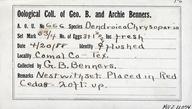 Oological Coll. of Geo. B. and Archie Benners.
A. O. U. No. 666 Name Dendroica Chrysoparia
Set Mark 63/4 No. of Eggs 3 Inc. fresh
Date 4/20/88 Identity flushed
Locality Comal Co. Tex.
Collected by G. B. Benners.
Remarks Nest with set. Placed in Red
Cedar 20 ft. up.